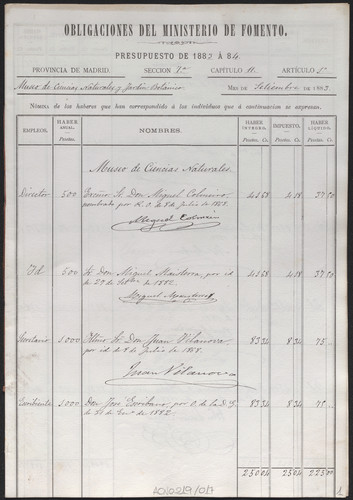 OBLIGACIONES DEL MINISTERIO DE FOMENTO.
PRESUPUESTO DE 1883 Á 84.
PROVINCIA DE MADRID. SECCION 7ª CAPÍTULO 11. ARTÍCULO 5º
Museo de Ciencias Naturales y Jardin Botánico MES DE Setiembre DE 1883
NÓMINA de los haberes que han correspondido á los individuos que á continuacion se expresan.
EMPLEOS. HABER ANUAL. Pesetas. NOMBRES. HABER ÍNTEGRO. Pesetas. Cs. IMPUESTO. Pesetas. Cs. HABER LÍQUIDO. Pesetas. Cs.
Museo de Ciencias Naturales.
Director 500 Excmo. Sr. Don Miguel Colmeiro, 41 68 4 18 37 50
nombrado por R. O. de 8 de Julio de 1868.
Miguel Colmeiro
Id 500 Sr. Don Miguel Maisterra, por id 41 68 4 18 37 50
de 29 de 1882.
Miguel Maisterra
Secretario 1.000 Iltmo. Sr. Don Juan Vilanova, 83 34 8 34 75
por id de 8 de Julio de 1868.
Juan Vilanova
Escribiente 1.000 Don José Escribano, por O. de la D. G. 83 34 8 34 75
de 31 de Enº de 1882.
250 04 25 04 225 00